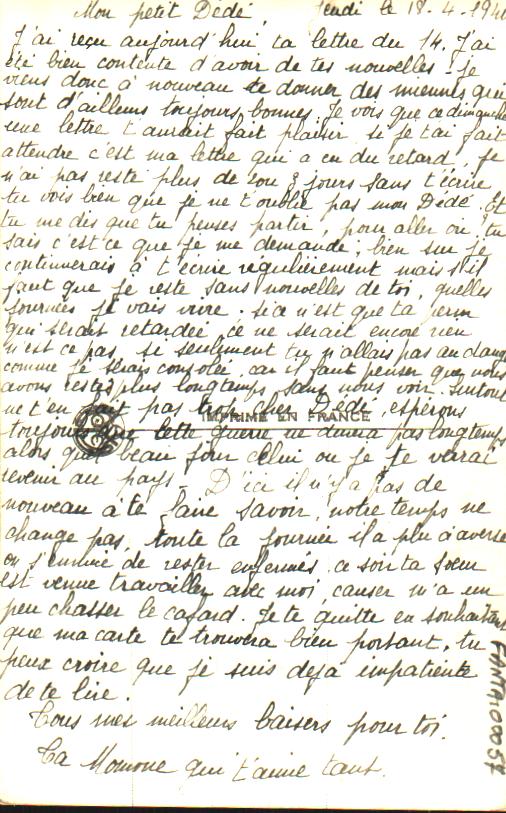 Mon petit Dédé, Jeudi le 18.4.1940
J'ai reçu aujourd'hui ta lettre du 14. J'ai
été bien contente d'avoir de tes nouvelles. Je
viens donc à nouveau te donner des miennes qui
sont d'ailleurs toujours bonnes. Je vois que ce dimanche
une lettre t'aurait fait plaisir si je t'ai fait
attendre c'est ma lettre qui a eu du retard, je
n'ai pas resté plus de 2 ou 3 jours sans t'écrire
tu vois bien que je ne t'oublie pas mon Dédé. Et
tu me dis que tu penses partir, pour aller où, tu
sais c'est ce que je me demande; bien sur je
continuerais à t'écrire régulièrement mais s'il
faut que je reste sans nouvelles de toi, quelles
journées je vais vivre. Si ce n'est que ta perm
qui serait retardée, ce ne serait encore rien
n'est ce pas, si seulement tu n'allais pas au danger
comme je serais consolée, car il faut penser que nous
avons resté plus longtemps sans nous voir. Surtout
ne t'en fait pas trop cher Dédé, espérons
IMPRIMÉ EN FRANCE
toujours que cette guerre ne durera pas longtemps
alors quel beau jour celui ou je te verrai
revenir au pays. D'ici il n'y a pas de
nouveau à te faire savoir, notre temps ne
change pas, toute la journée il a plu à averse
on s'ennuie de rester enfermés. ce soir ta sœur
est venue travailler avec moi, causer m'a un
peu chasser le cafard. Je te quitte en souhaitant
que ma carte te trouvera bien portant. tu
peux croire que je suis deja impatiente
de te lire.
Tous mes meilleurs baisers pour toi.
Ta Momone qui t'aime tant.